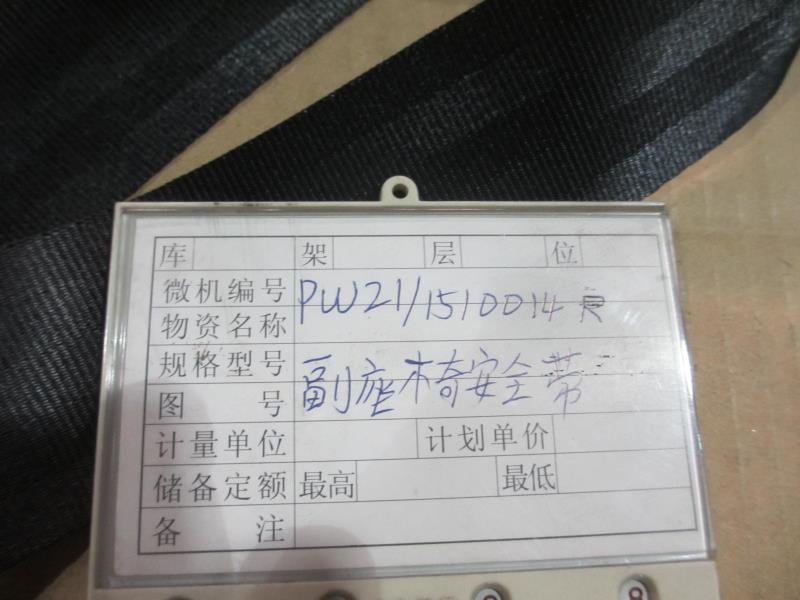 库 架 层 位
微机编号 PW21/1510014
物资名称
规格型号 副座椅安全带
图 号
计量单位 计划单价
储备定额 最高 最低
备 注
8